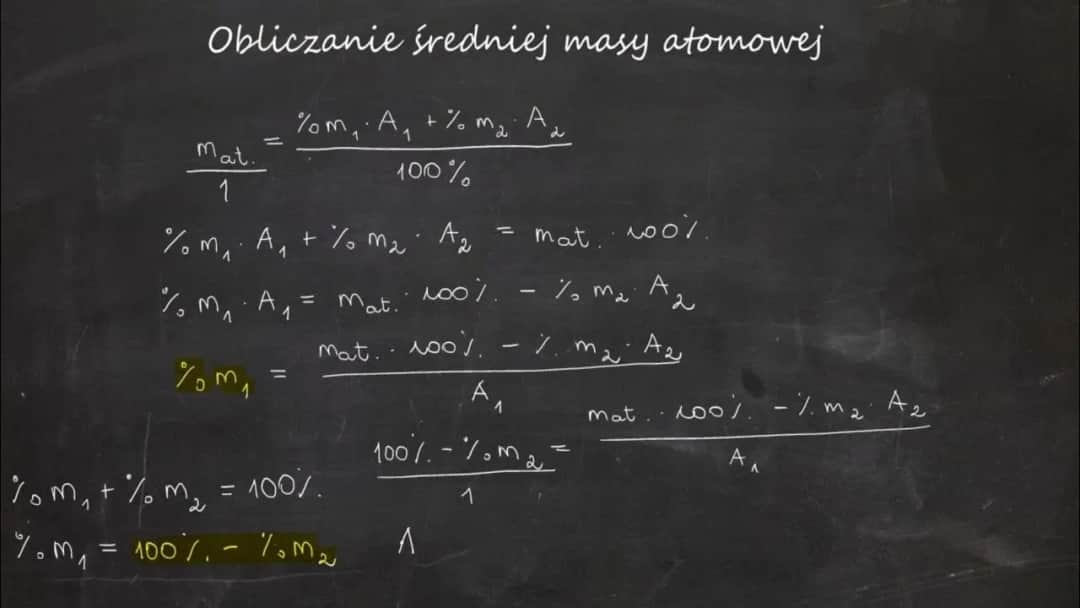 Obliczanie średniej masy atomowej
mat./1 = (%m₁ · A₁ + %m₂ · A₂)/100%
%m₁ · A₁ + %m₂ · A₂ = mat. · 100%.
%m₁ · A₁ = mat. · 100%. - %m₂ · A₂
%m₁ = (mat. · 100%. - %m₂ · A₂)/A₁
(100%. - %m₂)/1 = (mat. · 100%. - %m₂ · A₂)/A₁
%m₁ + %m₂ = 100%.
%m₁ = 100%. - %m₂